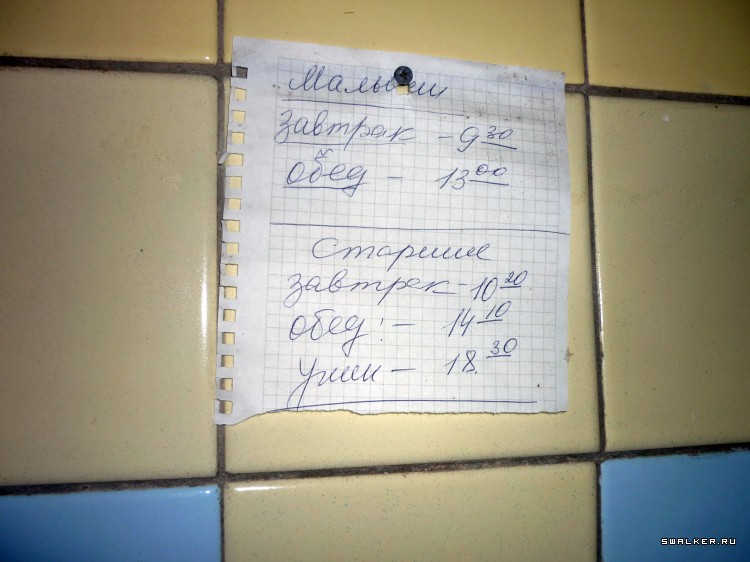 Малыши
завтрак - 9 30
обед - 13 00
Старшие
завтрак - 10 20
обед: - 14 10
ужин - 18. 30
SWALKER.RU